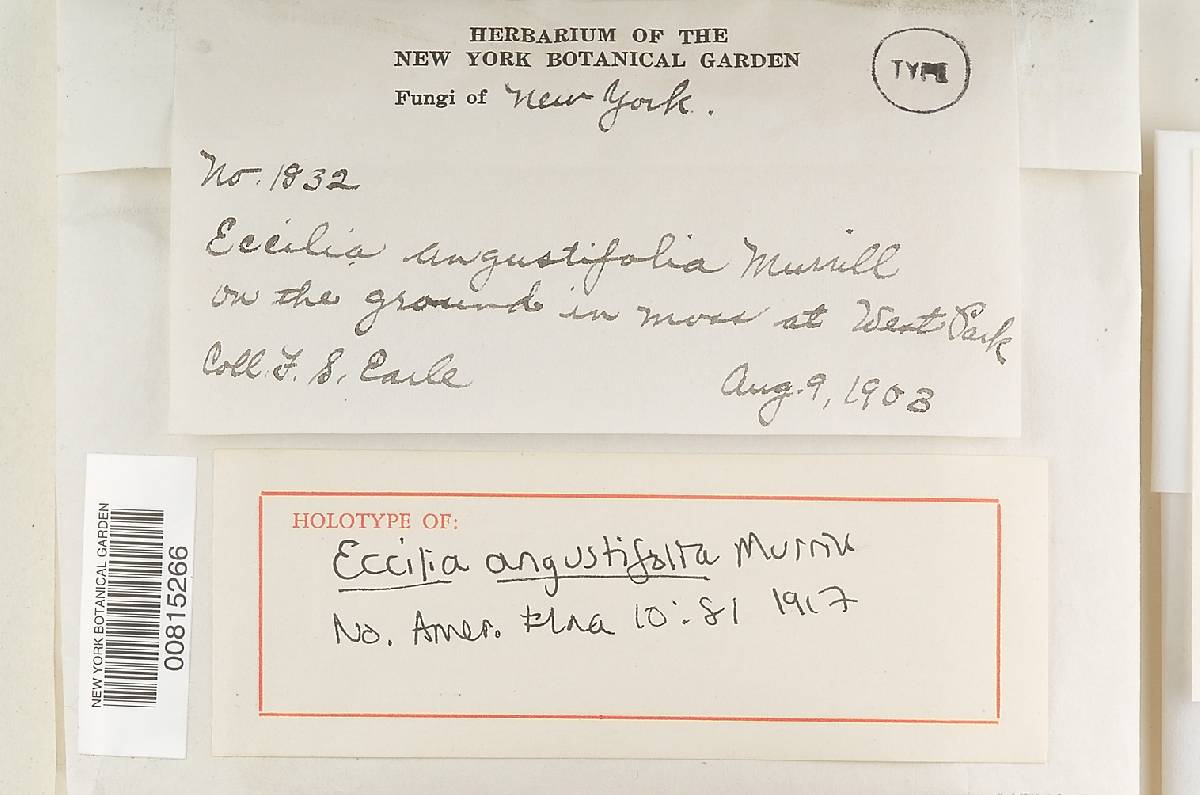 HERBARIUM OF THE
NEW YORK BOTANICAL GARDEN
Fungi of New York.
TYPE
No. 1832
Eccilia angustifolia Murrill
on the ground in moss at West Park
Coll. F. S. Earle
Aug. 9, 1903
NEW YORK BOTANICAL GARDEN
00815266
HOLOTYPE OF:
Eccilia angustifolia Murrill
No. Amer. Flora 10:81 1917